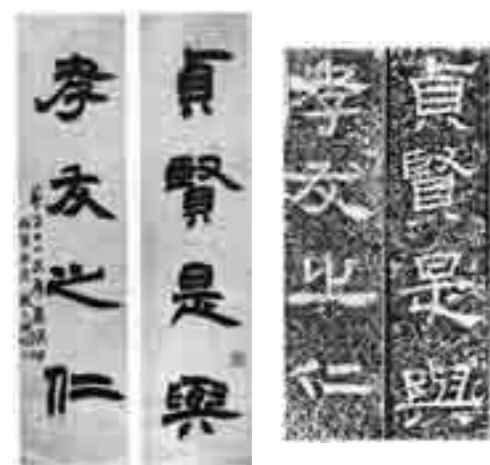 貞賢是與
孝友之仁
貞賢是與
孝友之仁